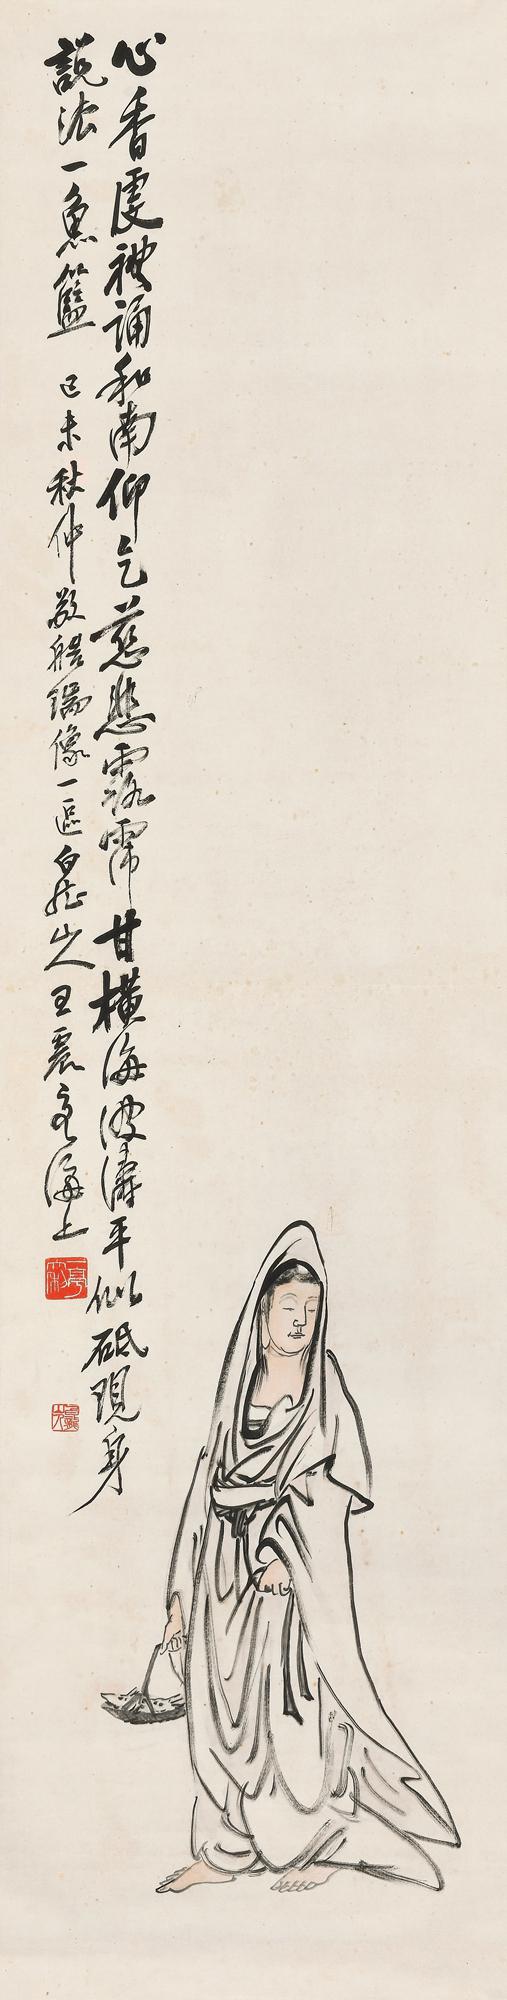 心香虔禱誦和南仰乞慈悲露霈甘橫海波濤平似砥現身
說法一魚籃 己未秋仲敬橅瑞像一區白龍山人王震客海上
一亭